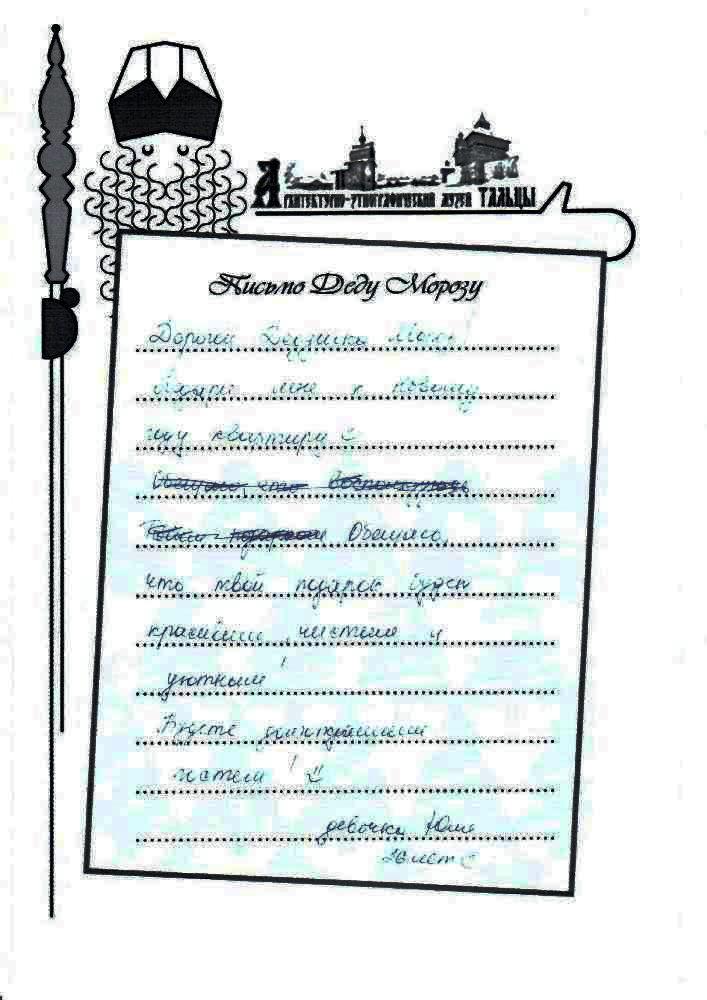 Архитектурно-этнографический музей ТАЛЬЦЫ
Письмо Деду Морозу
Дорогой Дедушка Мороз!
Подари мне к Новому
году квартиру
Обещаю, что
Обещаю,
что твой подарок будет
красивым, чистым и
уютным!
Будете
гостем!
девочка Юля